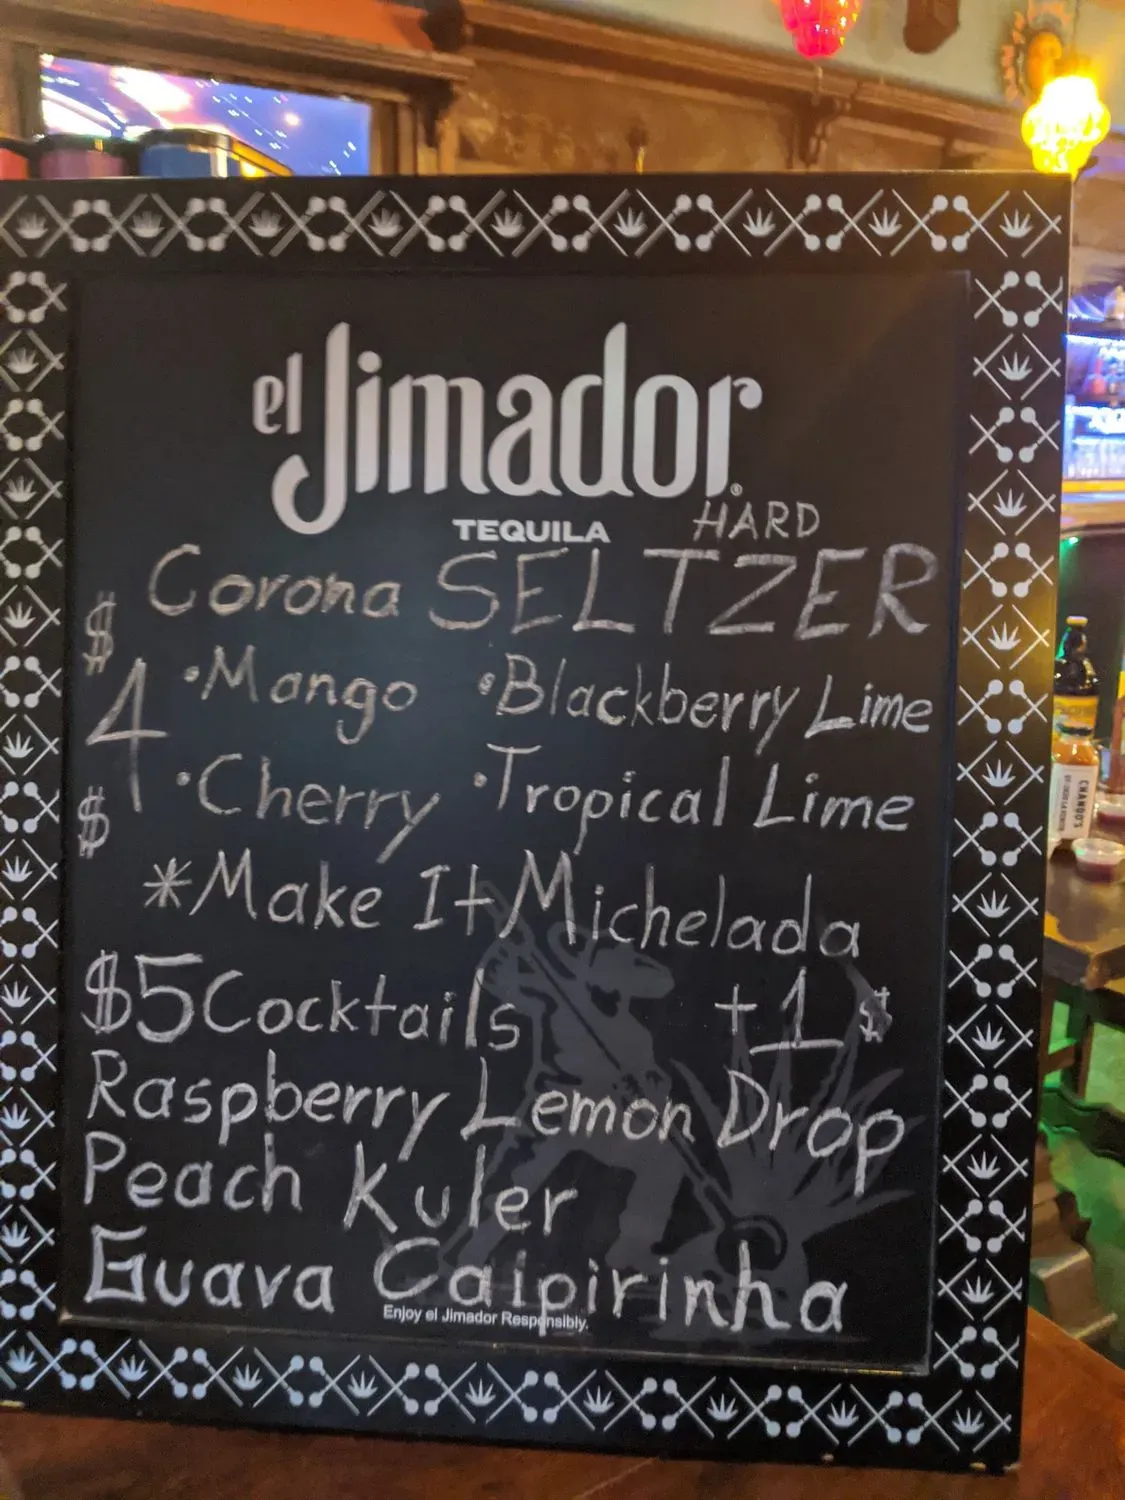 el Jimador®
TEQUILA
HARD
Corona SELTZER
$
4
$
•Mango •Blackberry Lime
•Cherry •Tropical Lime
*Make It Michelada
$5 Cocktails + 1 $
Raspberry Lemon Drop
Peach Kuler
Guava Caipirinha
Enjoy el Jimador Responsibly.
CHANGO'S